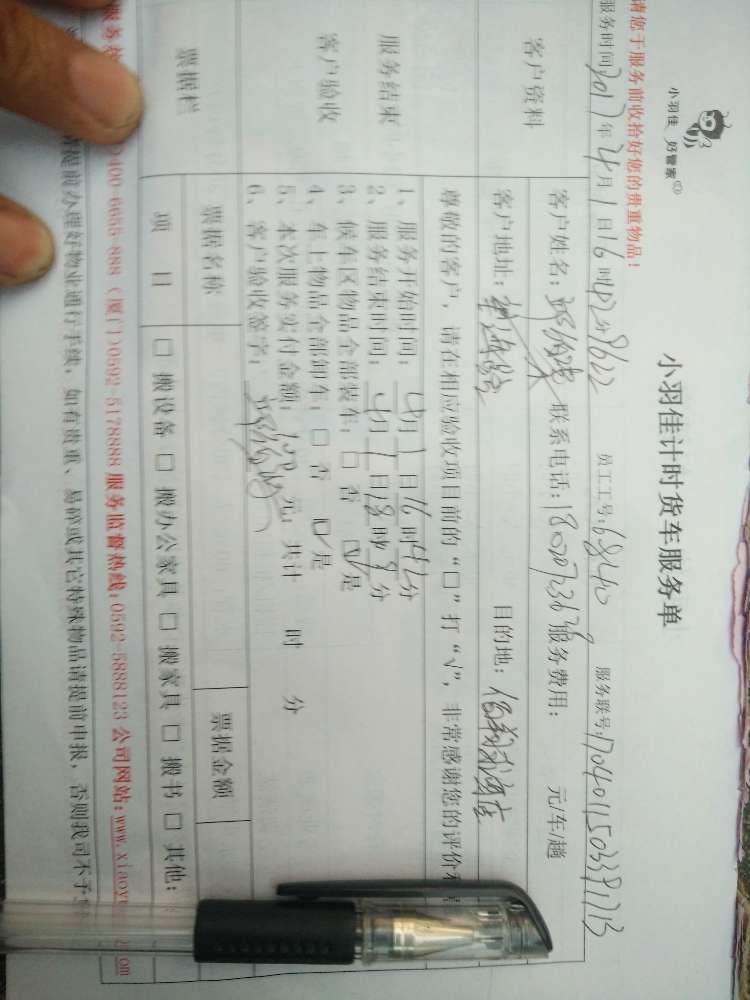 小羽佳 好管家
小羽佳计时货车服务单
请您于服务前收拾好您的贵重物品!
服务时间2017年4月1日16时42分 员工工号:6840 服务联号:1704011503391713
客户资料
客户姓名: 联系电话: 服务费用: 元/车/趟
客户地址: 目的地: 酒店
服务结束
客户验收
尊敬的客户，请在相应验收项目前的“□”打“√”，非常感谢您的评价
1、服务开始时间: 4月1日16时42分
2、服务结束时间: 4月1日18时 分
3、候车区物品全部装车: □ 否 ☑ 是
4、车上物品全部卸车: □ 否 ☑ 是
5、本次服务实付金额: 100 元; 共计 时 分
6、客户验收签字:
票据栏
票据名称 票据金额
项 目 □ 搬设备 □ 搬办公家具 □ 搬家具 □ 搬书 □ 其他:
400-6655-888 (厦门)0592-5178888 服务监督热线:0592-5888123 公司网站:www.xiaoy
提前办理好物业通行手续，如有贵重、易碎或其它特殊物品请提前申报，否则我司不予